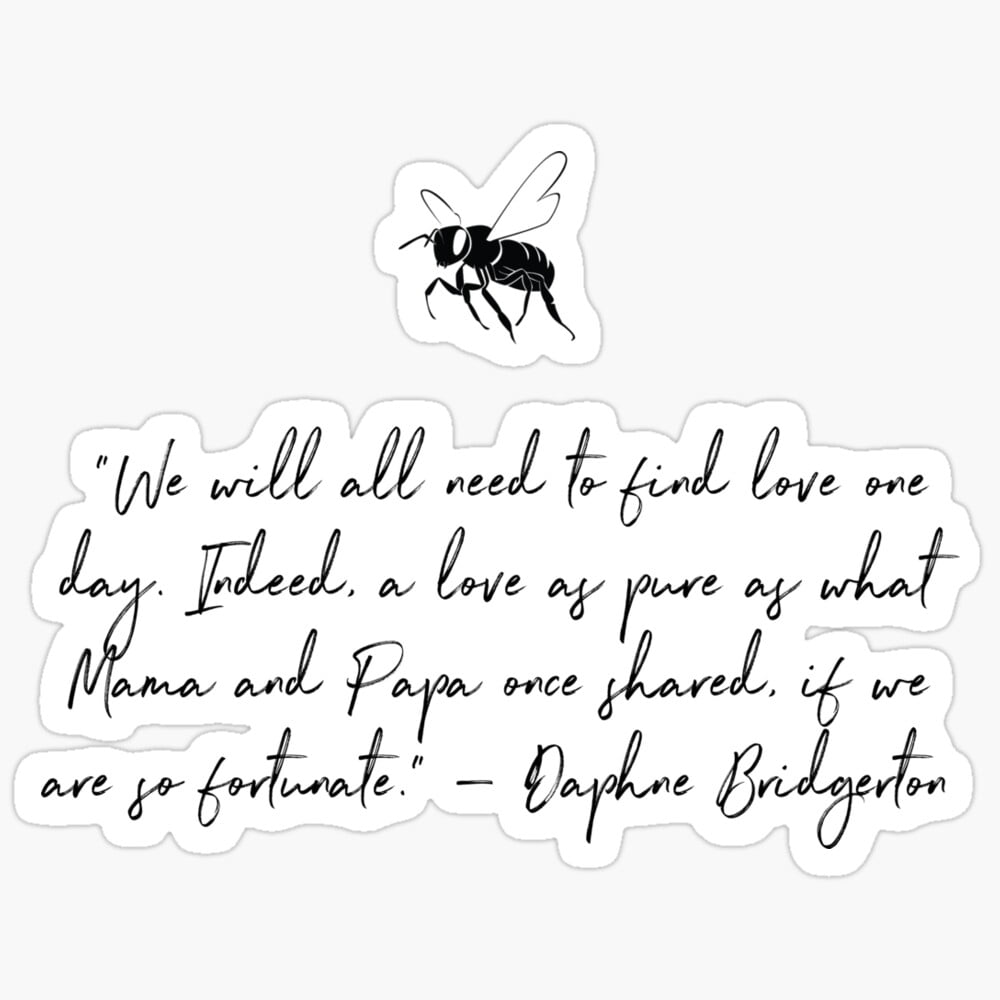 "We will all need to find love one
day. Indeed, a love as pure as what
Mama and Papa once shared, if we
are so fortunate." – Daphne Bridgerton